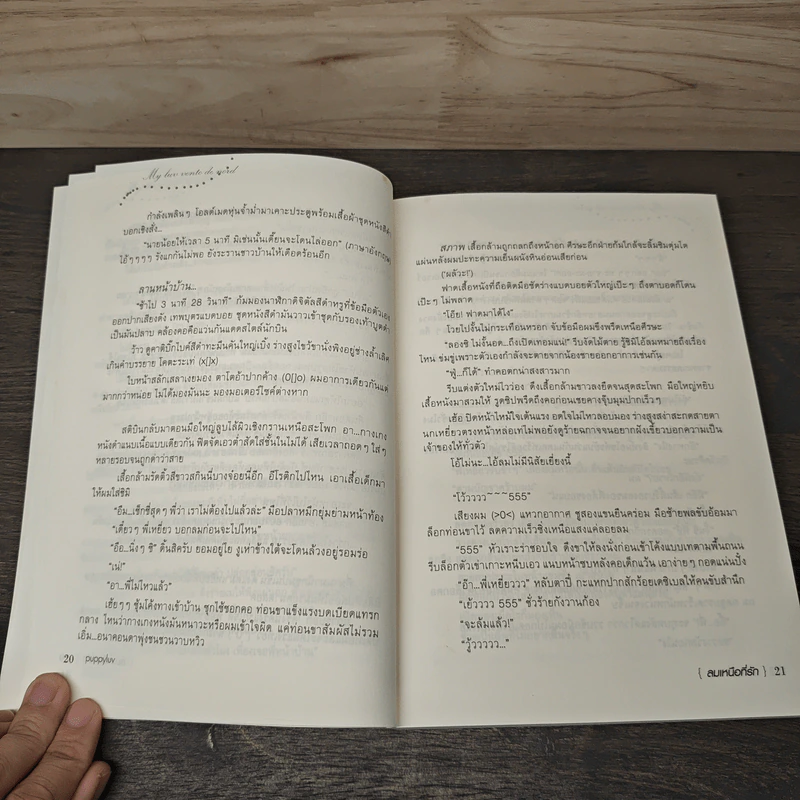 My bco vento de nord
กำลังเพลินๆ โอลด์เมดหุ่นจ้ำม่ำมาเคาะประตูพร้อมเสื้อผ้าชุดหนังสีดำ
บอกเชิงสั่ง...
"นายน้อยให้เวลา 5 นาที มิเช่นนั้นเดี๋ยนจะโดนไล่ออก" (ภาษาอังกฤษ)
โอ้ๆๆๆๆ รังแกกันไม่พอ ยังระรานชาวบ้านให้เดือดร้อนอีก
ลานหน้าบ้าน...
"ช้าไป 3 นาที 28 วินาที" ก้มมองนาฬิกาดิจิตัลสีดำหรูที่ข้อมือตัวเอง
ออกปากเสียงดัง เทพบุตรแบดบอย ชุดหนังสีดำมันวาวเข้าชุดกับรองเท้าบูตดำ
เป็นมันปลาบ คล้องคอคือแว่นกันแดดสไตล์นักบิน
ว้าว ดูคาติบิ๊กไบค์สีดำทะมึนคันใหญ่เบ้ง ร่างสูงไขว้ขานั่งพิงอยู่ช่างล้ำเลิศ
เกินคำบรรยาย โคตะระเท่ (x[]x)
ใบหน้าสลักเสลาเงยมอง ตาโตอ้าปากค้าง (O[]o) ผมอาการเดียวกันแต่
มากกว่าหน่อย ไม่ได้มองมันนะ มองมอเตอร์ไซค์ต่างหาก
สติบินกลับมาตอนมือใหญ่ลูบไล้ผิวเชิงกรานเหนือสะโพก อา...กางเกง
หนังดำแนบเนื้อแบบเดียวกัน ฟิตจัดเอวต่ำสัดใส่ชั้นในไม่ได้ เสียเวลาถอดๆ ใส่ๆ
หลายรอบจนถูกด่าว่าสาย
เสื้อกล้ามรัดติ้วสีขาวสกินนี่บางจ๋อยนี่อีก อีโรติกไปไหน เอาเสื้อเด็กมา
ให้ผมใส่ชิมิ
"อืม...เซ็กซี่สุดๆ พี่ว่า เราไม่ต้องไปแล้วล่ะ" มือปลาหมึกยุ่มย่ามหน้าท้อง
"เดี๋ยวๆ พี่เหยี่ยว บอกลมก่อนจะไปไหน"
"อือ...นิ่งๆ ซิ" ดิ้นสิครับ ยอมอยู่ไย งูเห่าข้างใต้จะโดนล้วงอยู่รอมร่อ
"เน่!"
"อา...พี่ไม่ไหวแล้ว"
เฮ้ยๆๆ ซุ้มโค้งทางเข้าบ้าน ซุกไซ้ซอกคอ ท่อนขาแข็งแรงบดเบียดแทรก
กลาง ไหนว่ากางเกงหนังมันหนาวะหรือผมเข้าใจผิด แค่ท่อนขาสัมผัสไม่รวม
เอิ่ม...อนาคอนดาพุ่งชนชวนวาบหวิว
20 puppyluv
สภาพ เสื้อกล้ามถูกถลกถึงหน้าอก ศีรษะอีกฝ่ายก้มใกล้จะลิ้มชิมตุ่มไต
แผ่นหลังผมปะทะความเย็นผนังหินอ่อนเสียก่อน
('ผลัวะ!')
ฟาดเสื้อหนังที่ถือติดมือขัดร่างแบดบอยตัวใหญ่เป๊ะๆ ถึงตาบอดก็โดน
เป๊ะๆ ไม่พลาด
"โอ๊ย! ฟาดมาได้ไง"
โวยไปงั้นไม่กระเทือนหรอก จับข้อมือผมขึงพรืดเหนือศีรษะ
"ลองซิ ไม่งั้นอด...ถึงเปิดเทอมแน่!" รีบงัดไม้ตาย รู้ซิมิไอ้ลมหมายถึงเรื่อง
ไหน ข่มขู่เพราะตัวเองกำลังจะตายจากน้องชายออกอาการเช่นกัน
"ฟู่...ก็ได้" ทำคอตกน่าสงสารมาก
รีบแต่งตัวใหม่ไวว่อง ดึงเสื้อกล้ามขาวลงยืดจนสุดสะโพก มือใหญ่หยิบ
เสื้อหนังมาสวมให้ รูดซิปพรืดถึงคอก่อนเชยคางจุ๊บมุมปากเร็วๆ
เฮ้อ ปิดหน้าไหม้ใจเต้นแรง อดใจไม่ไหวลอบมอง ร่างสูงสง่าสะกดสายตา
นกเหยี่ยวตรงหน้าหล่อเท่ไม่พอยังดูร้ายฉกาจจนอยากฝังเขี้ยวบอกความเป็น
เจ้าของให้ทั่วตัว
โอ๊ไม่นะ...ไอ้ลมไม่มีนิสัยเยี่ยงนี้
"โว้ววววว~~~555"
เสียงผม (>0<) แหวกอากาศ ชูสองแขนยืนคร่อม มือซ้ายพลขับอ้อมมา
ล็อกท่อนขาไว้ ลดความเร็วซิ่งเหนือแสงแค่ลอยลม
"555" หัวเราะร่าชอบใจ ดึงขาให้ลงนั่งก่อนเข้าโค้งแบบเทตามพื้นถนน
รีบล็อกตัวเข่าเกาะหนีบเอว แนบหน้าซบหลังคอเด็กแว้น เอาง่ายๆ กอดแน่นปั๋ง
"อ๊า...พี่เหยี่ยววว" หลับตาปี๋ กะแหกปากสักร้อยเดซิเบลให้คนขับสำนึก
"เย้วววว 555" ชั่วร้ายกังวานก้อง
"จะล้มแล้ว!"
"วู้ววววว..."
{ ลมเหนือที่รัก } 21